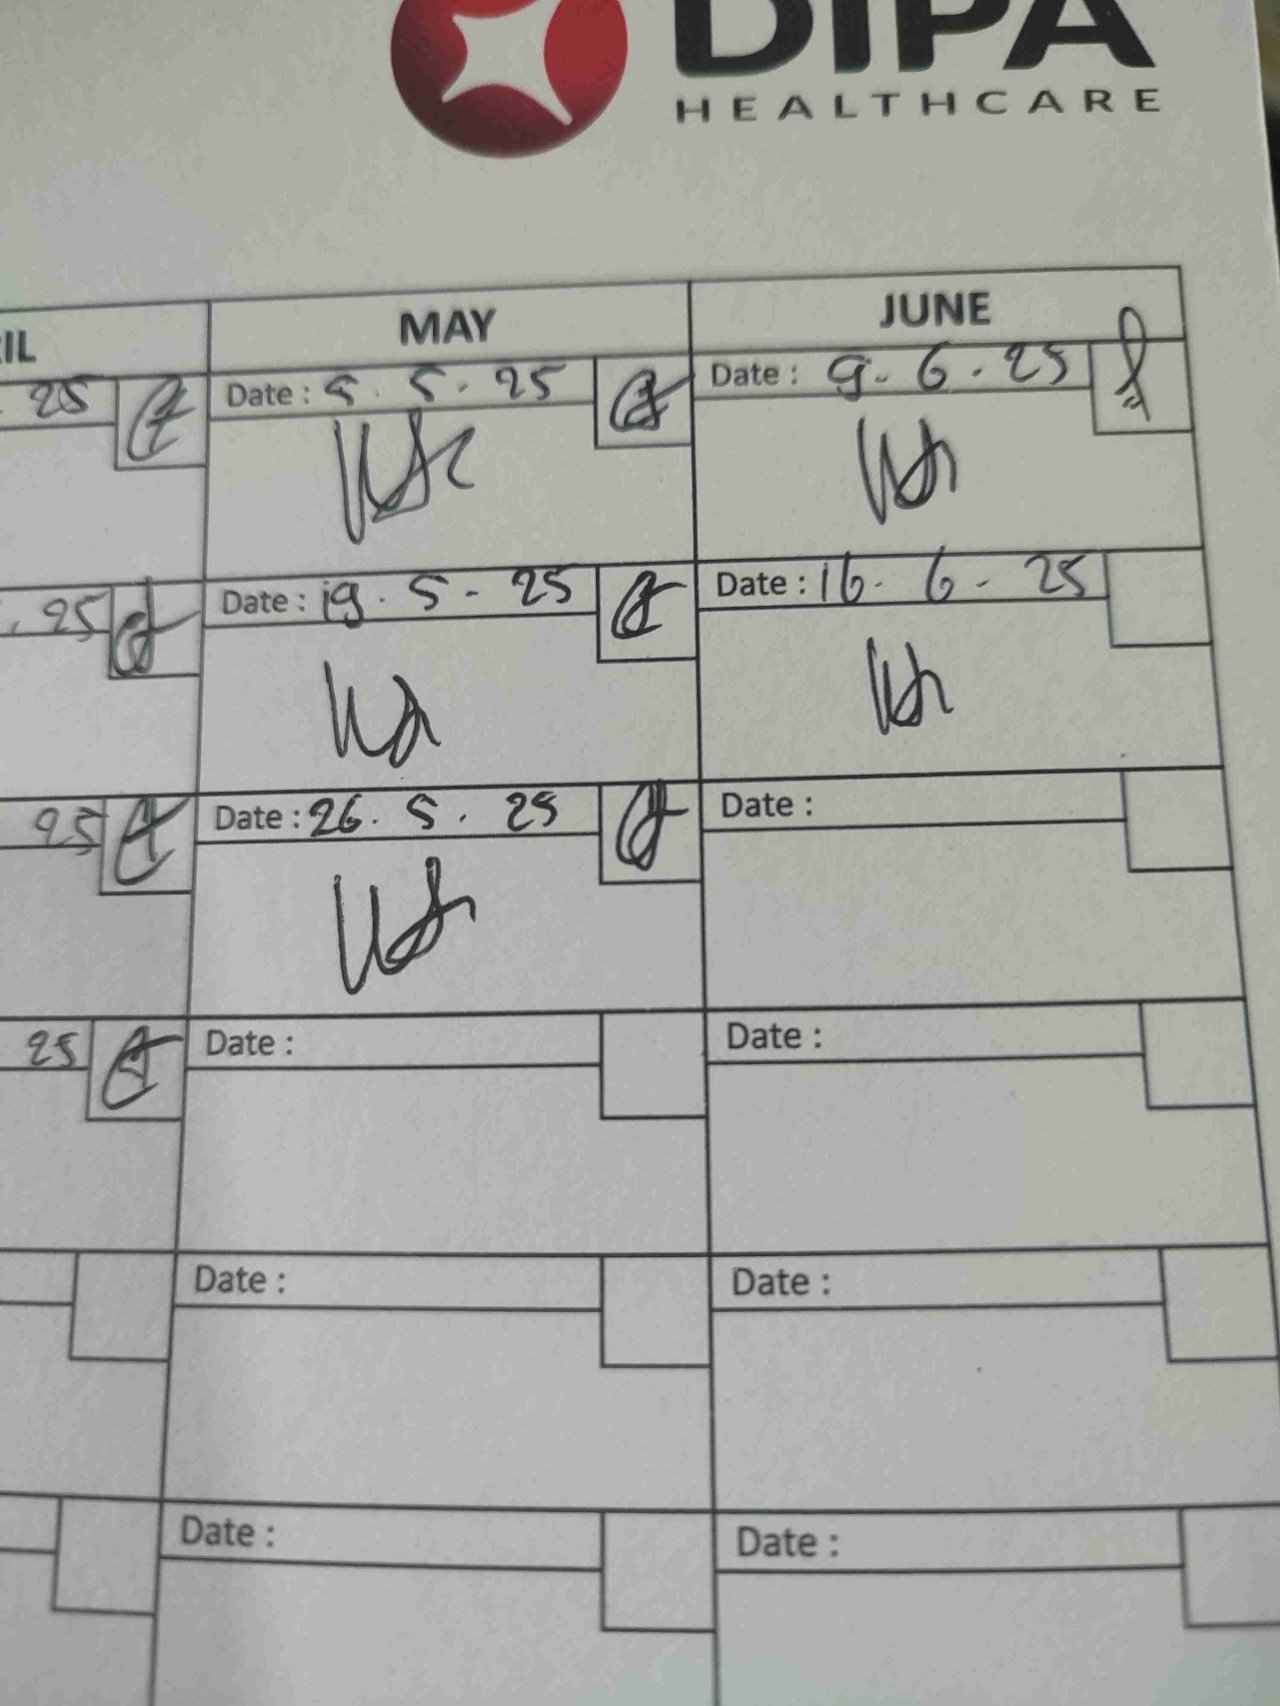 DIPA
HEALTHCARE
MAY
JUNE
25
Date : 5. 5. 25
Date : 9. 6. 25
. 25
Date : 19. 5 - 25
Date : 16. 6 - 25
25
Date : 26. 5. 25
Date :
25
Date :
Date :
Date :
Date :
Date :
Date :